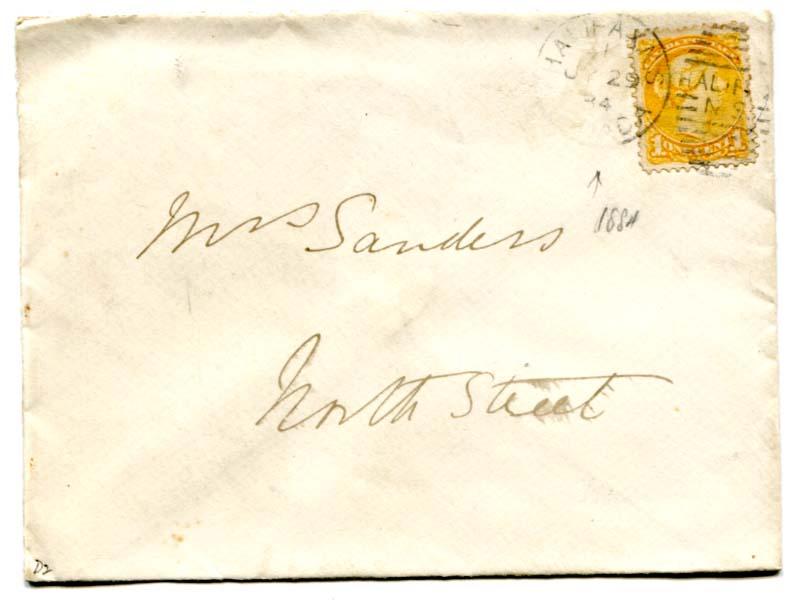 HALIFAX N.S.
29
84
CANADA
HALIF
N
1 ONE CENT 1
1884
Mrs Sanders
North Street
D2